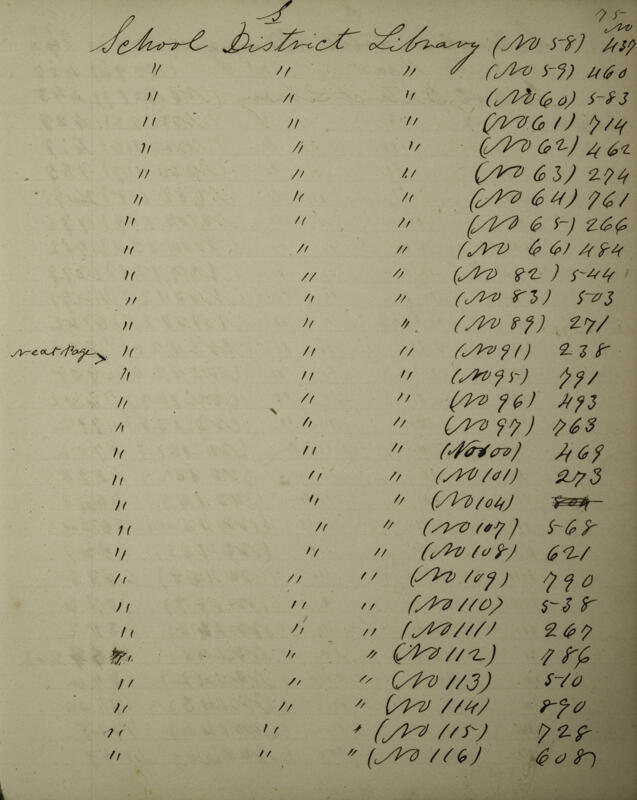 S
75
No
School District Library (No 58) 437
" " " (No 59) 460
" " " (No 60) 583
" " " (No 61) 714
" " " (No 62) 462
" " " (No 63) 274
" " " (No 64) 761
" " " (No 65) 266
" " " (No 66) 484
" " " (No 82) 544
" " " (No 83) 503
" " " (No 89) 271
Next Page " " " (No 91) 238
" " " (No 95) 791
" " " (No 96) 493
" " " (No 97) 763
" " " (No 100) 469
" " " (No 101) 273
" " " (No 104)
" " " (No 107) 568
" " " (No 108) 621
" " " (No 109) 790
" " " (No 110) 538
" " " (No 111) 267
" " " (No 112) 786
" " " (No 113) 510
" " " (No 114) 890
" " " (No 115) 728
" " " (No 116) 608